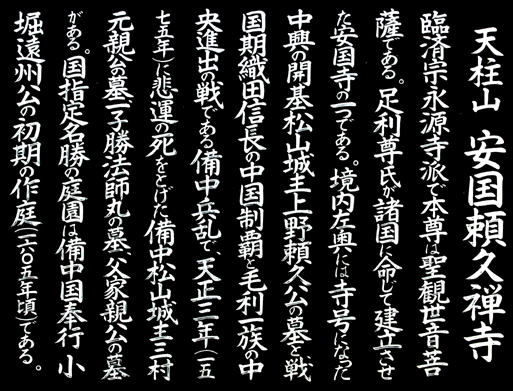 天柱山　安国頼久禅寺
臨済宗永源寺派で本尊は聖観世音菩
薩である。足利尊氏が諸国に命じて建立させ
た安国寺の一つである。境内左奥には寺号になった
中興の開基松山城主上野頼久公の墓と戦
国期織田信長の中国制覇と毛利一族の中
央進出の戦である備中兵乱で、天正三年（一五
七五年）に悲運の死をとげた備中松山城主三村
元親公の墓一子勝法師丸の墓、父家親公の墓
がある。国指定名勝の庭園は備中国奉行 小
堀遠州公の初期の作庭（一六〇五年頃）である。